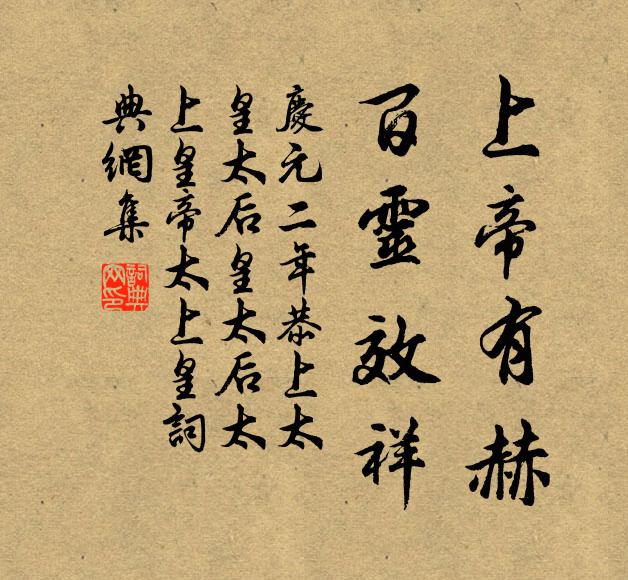 上帝有赫
百靈效祥
慶元二年恭上太
皇太后皇太后太
上皇帝太上皇詞
典網集
詞典網印